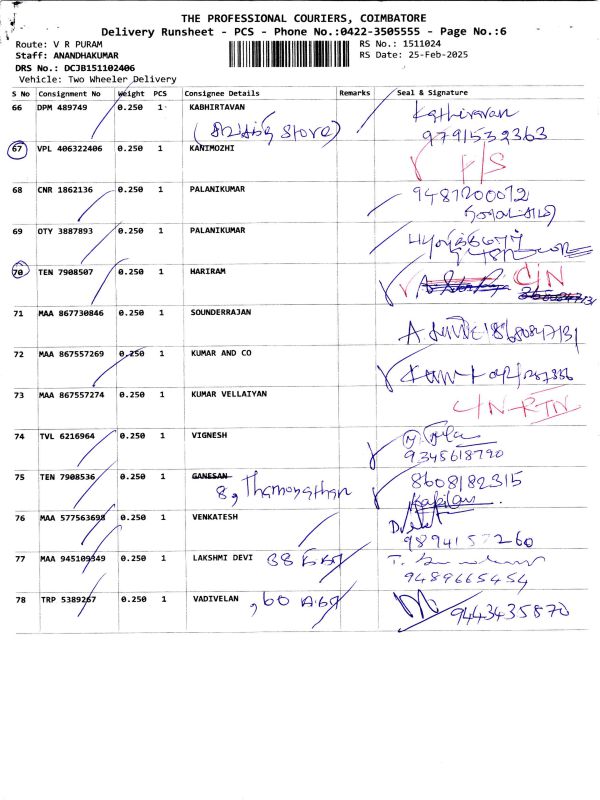 THE PROFESSIONAL COURIERS, COIMBATORE
Delivery Runsheet - PCS - Phone No.:0422-3505555 - Page No.:6
Route: V R PURAM RS No.: 1511024
Staff: ANANDHAKUMAR RS Date: 25-Feb-2025
DRS No.: DCJB151102406
Vehicle: Two Wheeler Delivery
S No Consignment No Weight PCS Consignee Details Remarks Seal & Signature
66 DPM 489749 0.250 1 KABHIRTAVAN Kathiravan
Store) 9791532363
67 VPL 406322406 0.250 1 KANIMOZHI F/S
68 CNR 1862136 0.250 1 PALANIKUMAR 9487200072
69 OTY 3887893 0.250 1 PALANIKUMAR
70 TEN 7908507 0.250 1 HARIRAM C/N
71 MAA 867730846 0.250 1 SOUNDERRAJAN
8680847131
72 MAA 867557269 0.250 1 KUMAR AND CO
73 MAA 867557274 0.250 1 KUMAR VELLAIYAN C/N-RTN
74 TVL 6216964 0.250 1 VIGNESH
9345618790
75 TEN 7908536 0.250 1 GANESAN 8608182315
8, Thamonathan Kapilan
76 MAA 577563698 0.250 1 VENKATESH
9894157260
77 MAA 945109349 0.250 1 LAKSHMI DEVI 38
9489665454
78 TRP 5389267 0.250 1 VADIVELAN , 60 9443435870